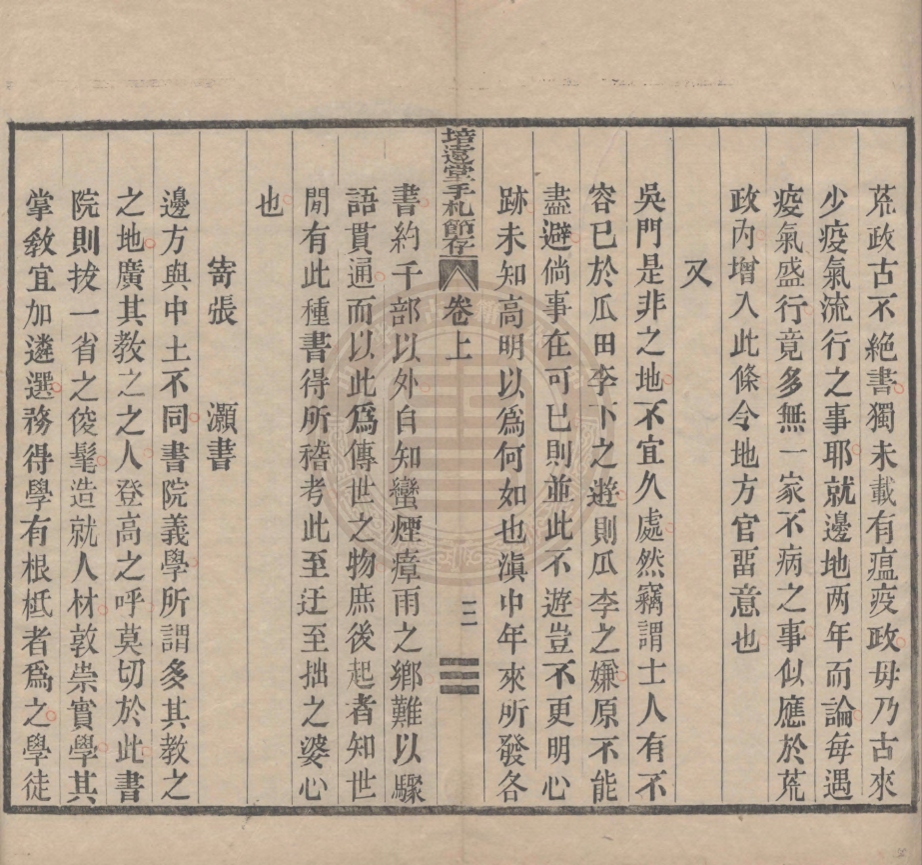 荒政古不絕書獨未載有瘟疫政毋乃古來
少疫氣流行之事耶就邊地两年而論每遇
疫氣盛行竟多無一家不病之事似應於荒
政內增入此條令地方官畱意也
又
吳門是非之地不宜久處然竊謂士人有不
容已於瓜田李下之遊則瓜李之嫌原不能
盡避倘事在可已則並此不遊豈不更明心
跡未知高明以爲何如也滇中年來所發各
培遠堂手札節存
卷上
三
書約千部以外自知蠻煙瘴雨之鄉難以驟
語貫通而以此爲傳世之物庶後起者知世
閒有此種書得所稽考此至迂至拙之婆心
也
寄張 灝書
邊方與中土不同書院義學所謂多其教之
之地廣其教之之人登高之呼莫切於此書
院則拔一省之俊髦造就人材敦崇實學其
掌敎宜加遴選務得學有根柢者爲之學徒